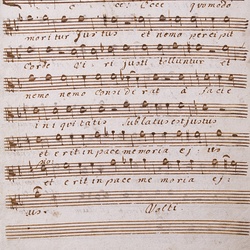 Ecce quomodo
moritur justus et nemo percipit
Corde Viri justi tolluntur et
nemo nemo considerat a facie
iniquitatis sublatus est justus
et erit in pace memoria ejus
et erit in pace memoria ej:
us: Volti